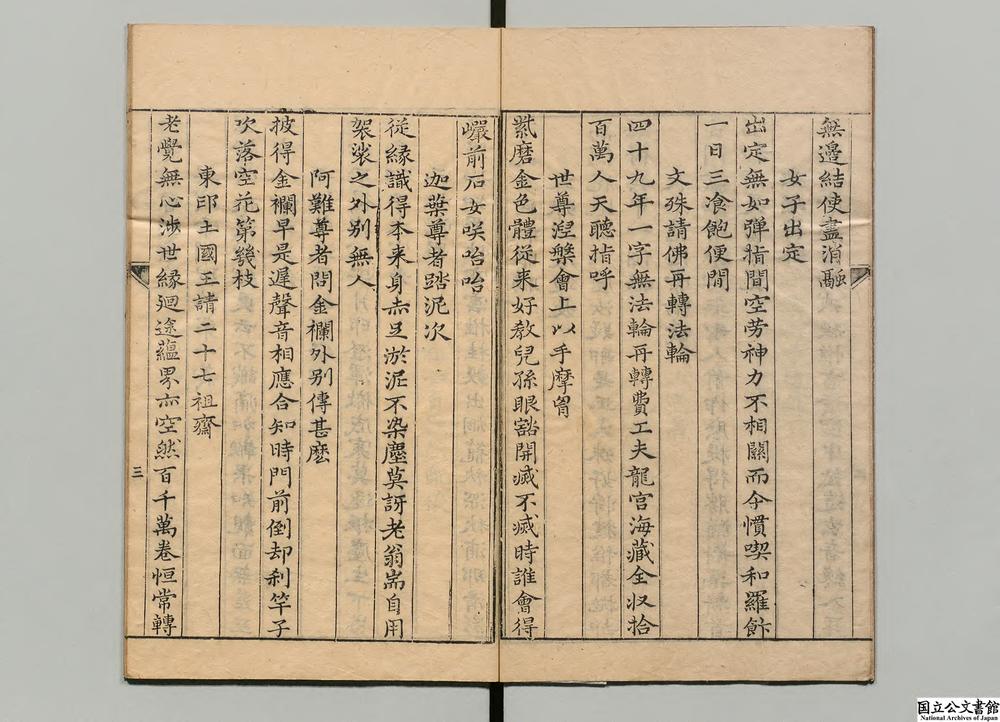 無邊結使盡消融
女子出定
出定無如彈指間空劳神力不相關而今慣喫和羅飰
一日三飡飽便閒
文殊請佛再轉法輪
四十九年一字無法輪再轉費工夫龍宫海藏全収拾
百萬人天聽指呼
世尊涅槃會上以手摩胷
紫磨金色體従来好教兒孫眼豁開滅不滅時誰會得
巗前石女咲咍咍
迦葉尊者踏泥次
従緣識得本来身赤旦淤泥不染塵莫訝老翁耑自用
袈裟之外别無人
阿難尊者問金襴外别傳甚麽
披得金襴早是遲聲音相應合知時門前倒却刹竿子
吹落空花第幾枝
東印土國王請二十七祖齋
老覺無心涉世緣廻途蘊界亦空然百千萬卷恒常轉
三
国立公文書館
National Archives of Japan